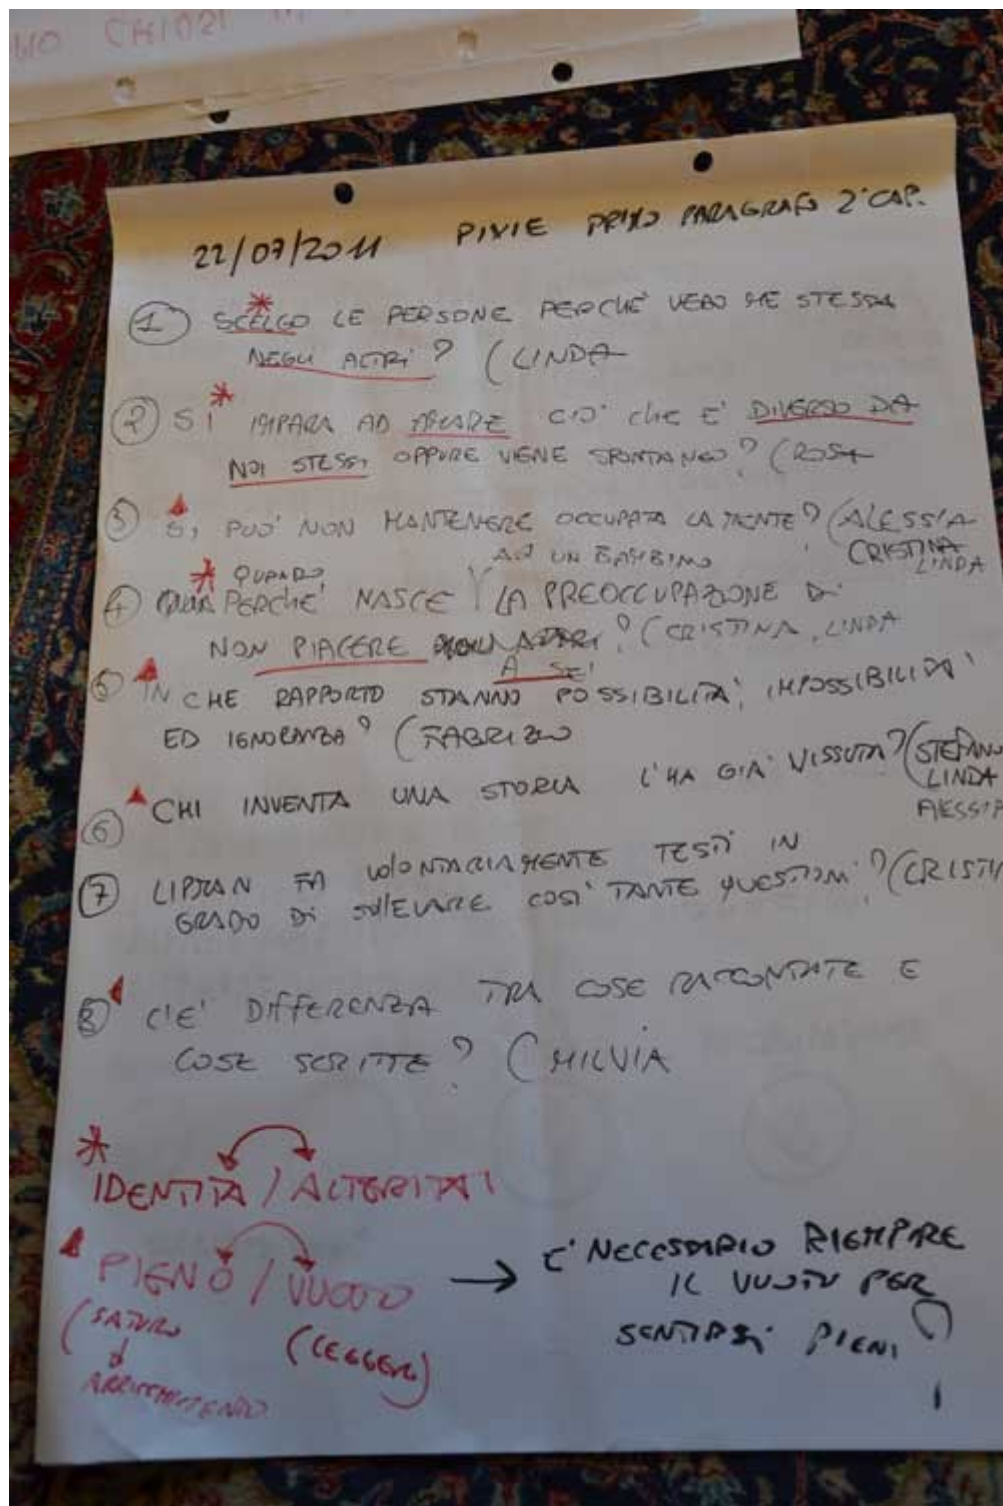 CHIARI
22/07/2011 PIXIE PRIMO PARAGRAFO 2° CAP.
1 SCELGO LE PERSONE PERCHE' VEDO ME STESSA
NEGLI ALTRI? (LINDA
2 SI IMPARA AD AMARE CIO' CHE E' DIVERSO DA
NOI STESSI OPPURE VIENE SPONTANEO? (ROSA
3 SI PUO' NON MANTENERE OCCUPATA LA MENTE? (ALESSIA
CRISTINA
LINDA
QUANDO, AD UN BAMBINO
4 PERCHE' NASCE LA PREOCCUPAZIONE DI
NON PIACERE ? (CRISTINA, LINDA
A SE'
5 IN CHE RAPPORTO STANNO POSSIBILITA', IMPOSSIBILITA'
ED IGNORANZA? (FABRIZIO
6 CHI INVENTA UNA STORIA L'HA GIA' VISSUTA? (STEFANO
LINDA
ALESSIA
7 LIPMAN FA VOLONTARIAMENTE TESTI IN
GRADO DI SOLLEVARE COSI' TANTE QUESTIONI? (CRISTI
8 C'E' DIFFERENZA TRA COSE RACCONTATE E
COSE SCRITTE? (MILVIA
* IDENTITA / ALTERITA'
PIENO / VUOTO → E' NECESSARIO RIEMPIRE
IL VUOTO PER
SENTIRSI PIENI ?
(SATURO (LEGGERO)
ARRICCHIMENTO